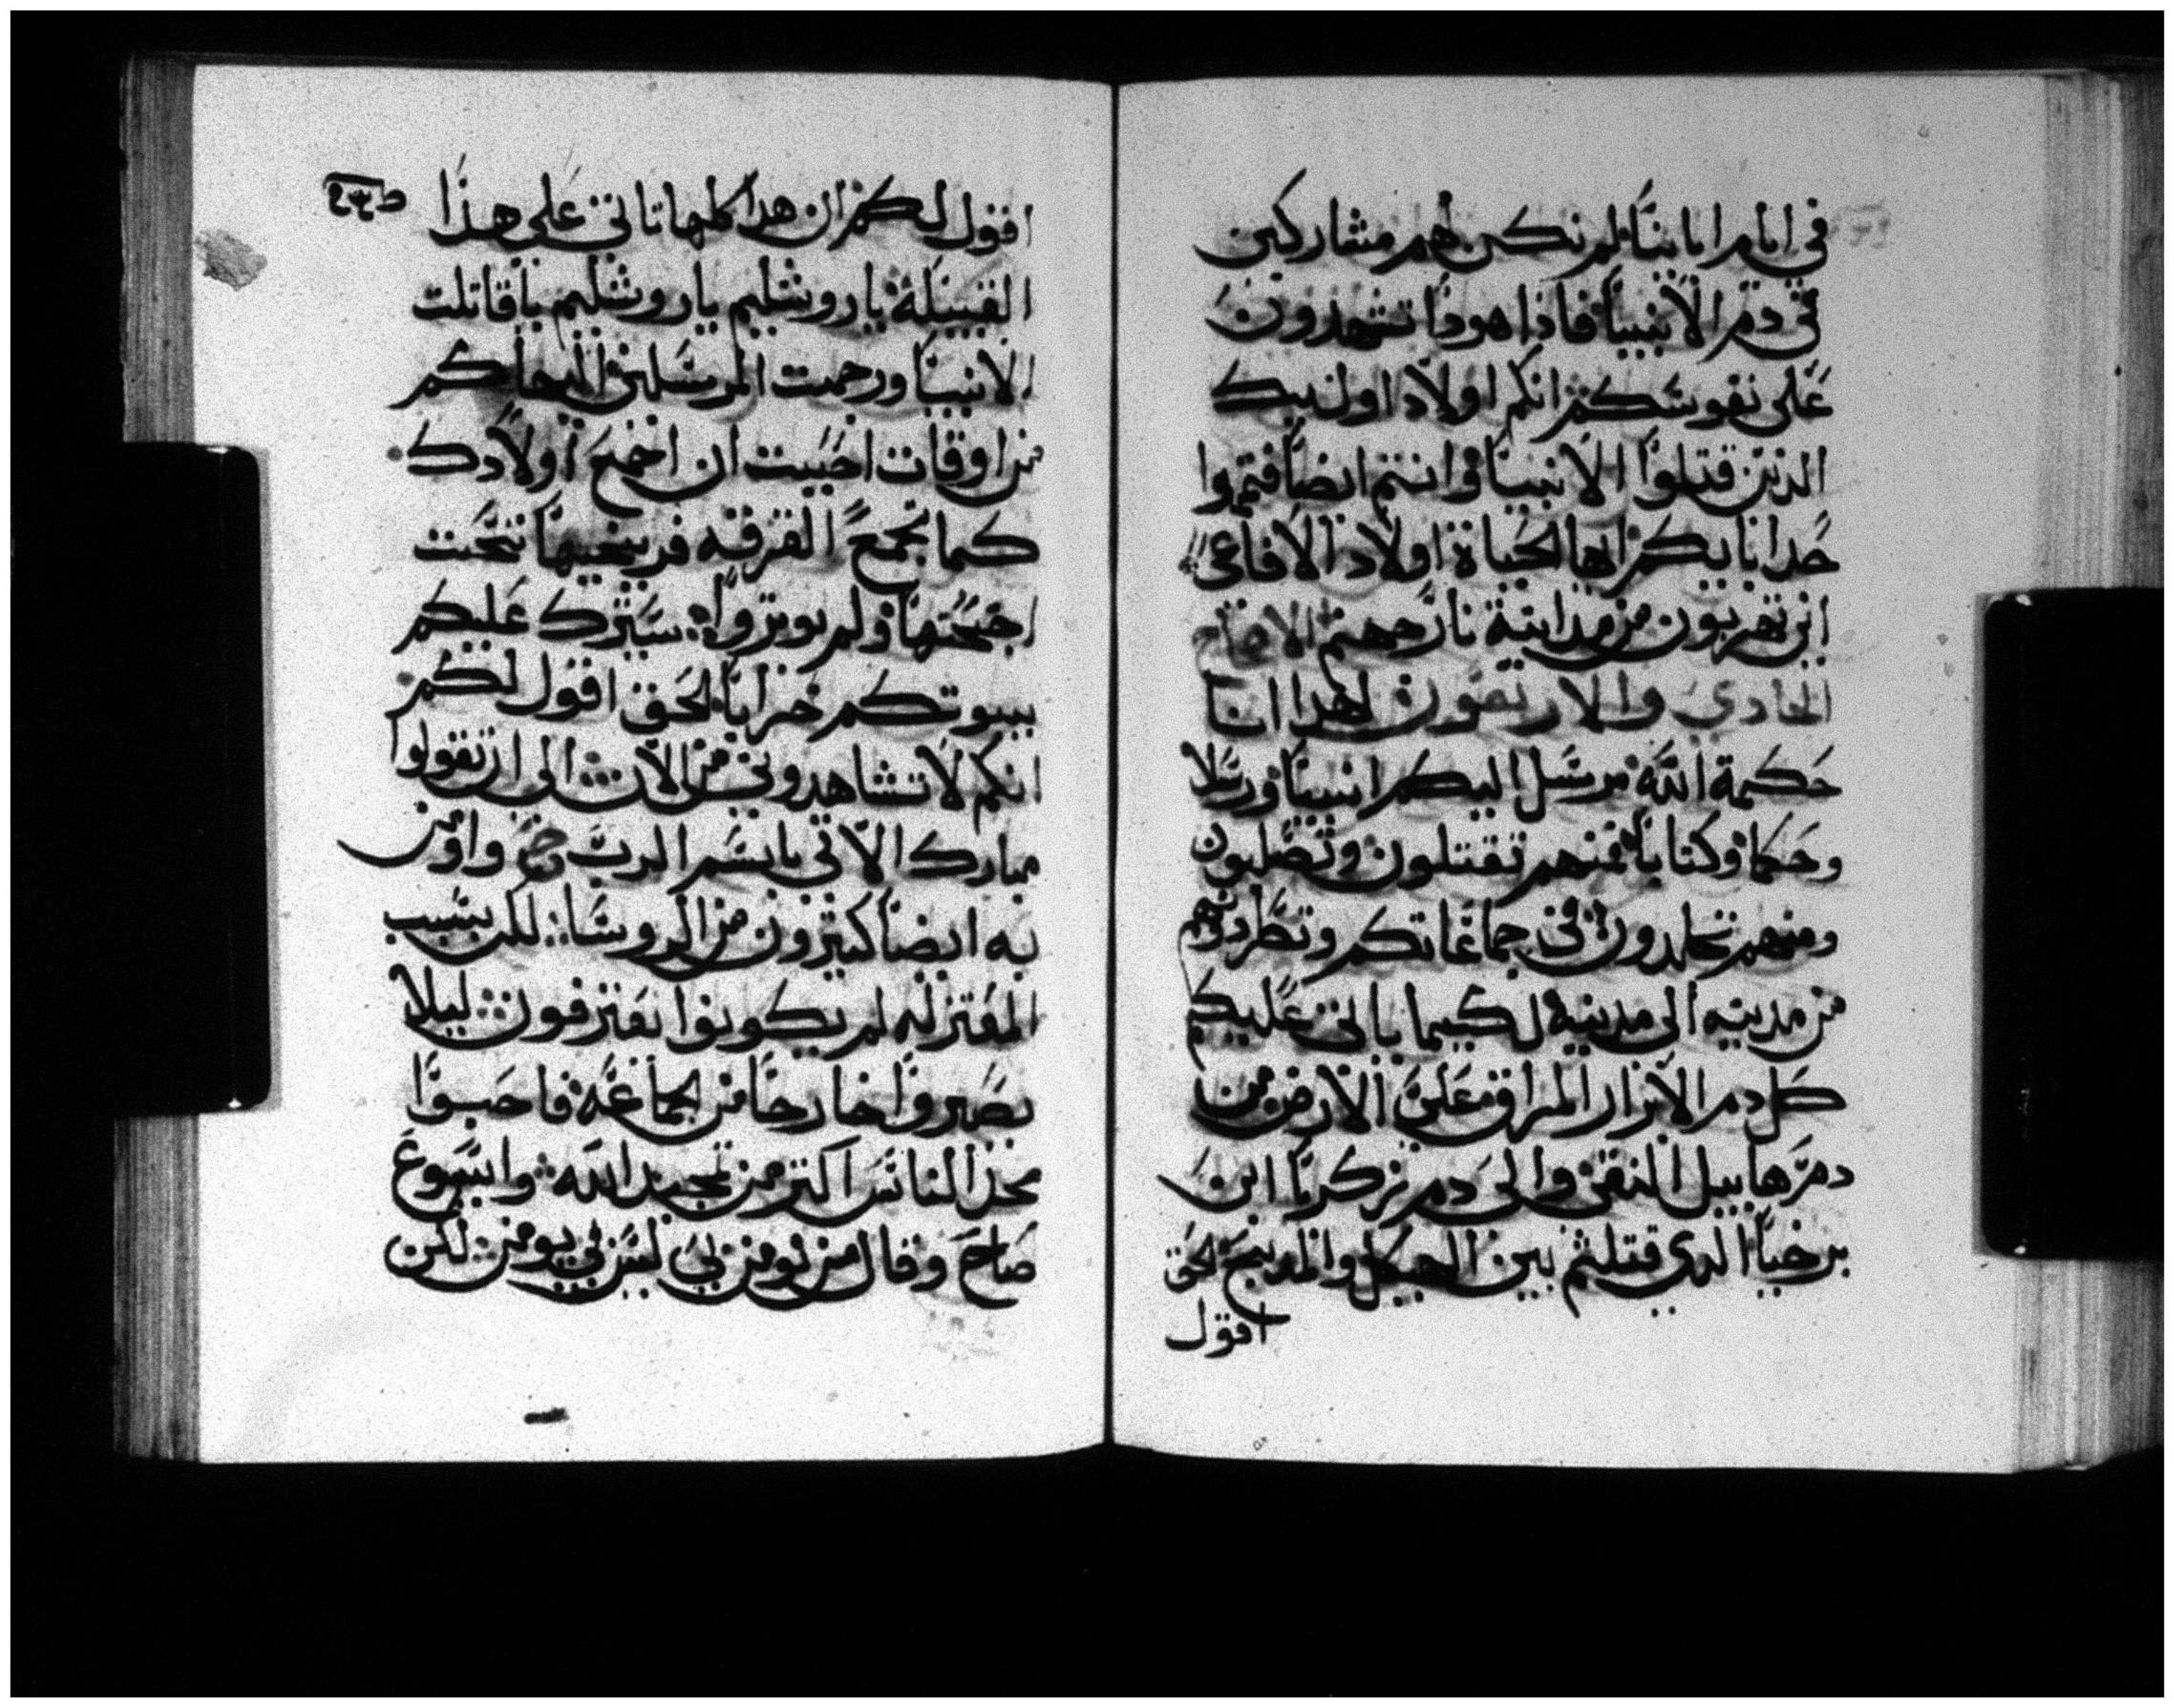 في ايام ابايناً لم نكن لهم مشاركين
في دم الانبياً فاذا هوذا تشهدون
على نفوسكم انكم اولاد اوليك
الذين قتلواً الانبياً وانتم ايضاً فتمموا
حدا بايكم ايها الحياة اولاد الافاعي
اين تهربون من مداينة نار جهنم
الحادي والاربعون لهدا انا
حكمة الله مرسل اليكم انبياً ورسلا
وحكما وكتاباً فمنهم تقتلون وتصلبون
ومنهم تجلدون في جماعاتكم وتطردونهم
من مدينه الى مدينه لكيما ياتي عليكم
كل دم الابرار المراق على الارض من
دم هابيل النقي والى دم زكريا ابن
برخيا الدي قتلتم بين الهيكل والمدبح الحق
اقول
اقول لكم ان هدا كلها تاتي على هذا
القبيله يا روشليم يا روشليم يا قاتلت
الانبياً ورجمت المرسلين اليها كم
من اوقات احببت ان اجمع اولادك
كما تجمع الفرقه فريخيها تحت
اجنحتها ولم تومروا سيترك عليكم
بيوتكم خراباً الحق اقول لكم
انكم لا تشاهدوني من الان الى ان تقولوا
مبارك الاتي باسم الرب وامن
به ايضاً كتيرون من الروسا لكن بسبب
المعتزله لم يكونوا يعترفون ليلا
يصيروا خارجا من الجماعه فاحبوا
مجد الناس اكتر من تمجيد الله وايسوع
صاح وقال من يومن بي ليس بي يومن لكن